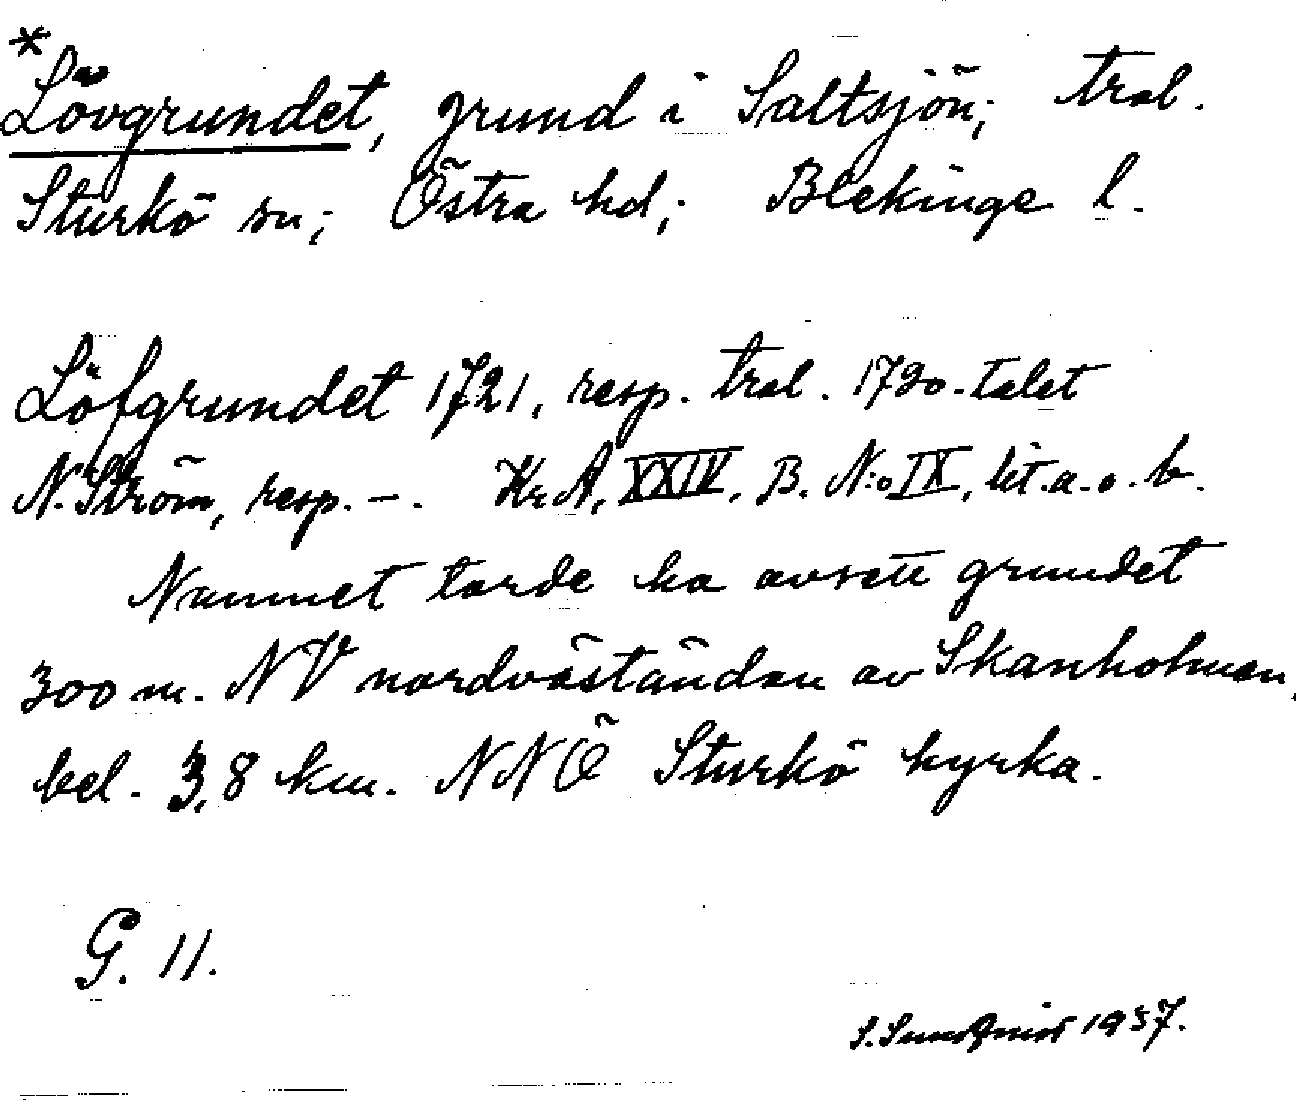 *
Lövgrundet, grund i Saltsjön; tral.
Sturkö sn; Östra hd; Blekinge l.
Löfgrundet 1721, resp. tral. 1720-talet
N. Ström, resp. –. KrA, XXIV, B. N:o IX, lit. a. o. b.
Namnet torde ha avsett grundet
300 m. NV nordväständan av Skanholmen,
bel. 3,8 km. NNÖ Sturkö kyrka.
G. 11.
S. Sundqvist 1937.